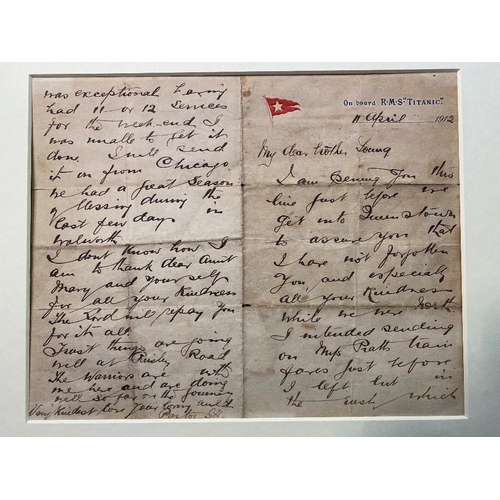 On board R·M·S "TITANIC".
11 April 1912
My dear brother Young
I am penning you this
line just before we
get into Queenstown
to assure you that
I have not forgotten
you, and especially
all your kindness
while we were North
I intended sending
on Miss Pratts train
fares just before
I left but in
the rush which
was exceptional having
had 11 or 12 Services
for the week-end I
was unable to get it
done. I will send
it on from Chicago
we had a great Season
of blessing during the
last few days in
Walworth
I dont know how I
am to thank dear Aunt
Mary and yourself
for all your Kindness
The Lord will repay you
for it all
Trust things are going
well at Paisley Road
The Warriors are with
me here and are doing
well so far on the journey
Very kindest love Your loving auld
Pastor J H